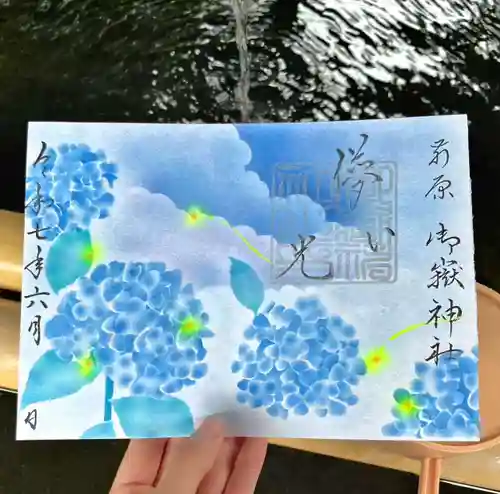 前原 御嶽神社
儚い
光
令和七年六月
日